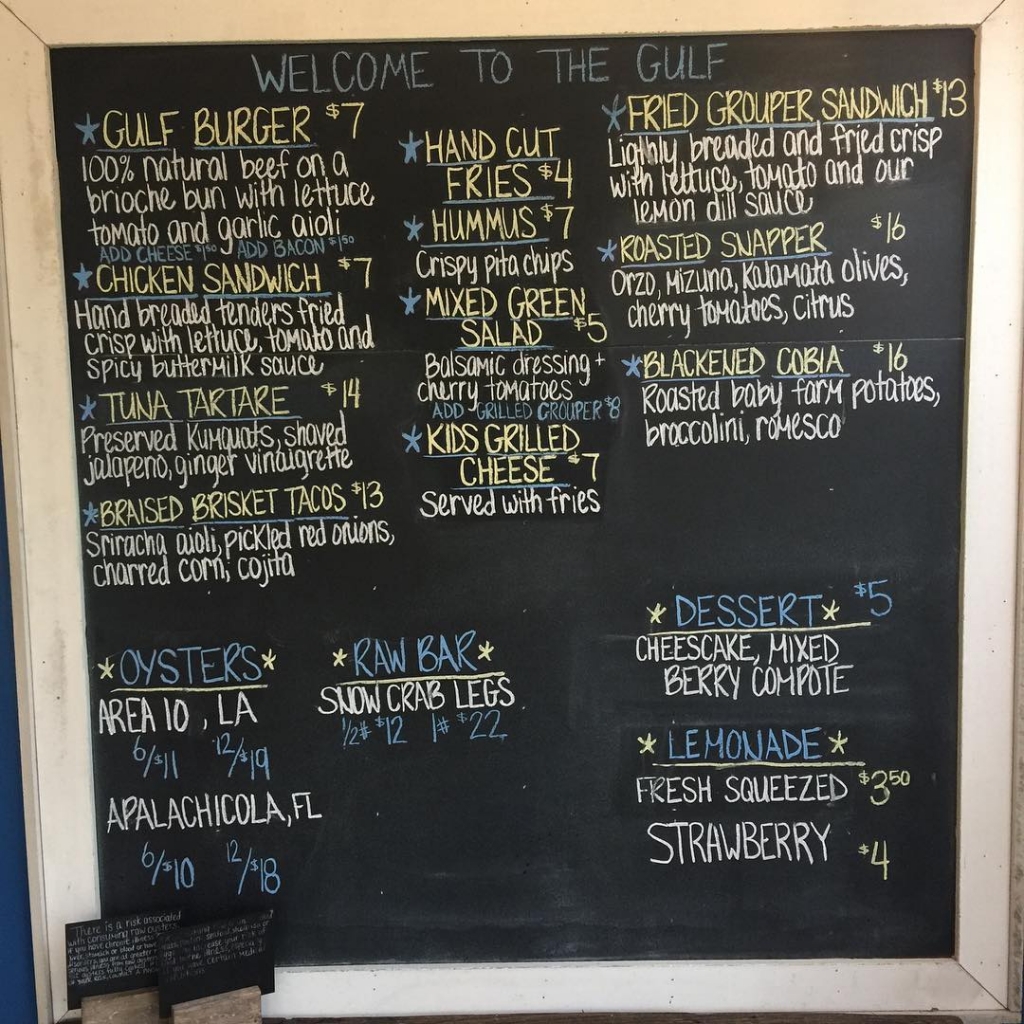 WELCOME TO THE GULF
*GULF BURGER $7
100% natural beef on a
brioche bun with lettuce
tomato and garlic aioli
ADD CHEESE $1.50 ADD BACON $1.50
*CHICKEN SANDWICH $7
Hand breaded tenders fried
crisp with lettuce, tomato and
spicy buttermilk sauce
*TUNA TARTARE $14
Preserved Kumquats, shaved
jalapeno, ginger vinaigrette
*BRAISED BRISKET TACOS $13
Sriracha aioli, pickled red onions,
charred corn, cojita
*HAND CUT
FRIES $4
*HUMMUS $7
Crispy pita chips
*MIXED GREEN
SALAD $5
Balsamic dressing +
cherry tomatoes
ADD GRILLED GROUPER $8
*KIDS GRILLED
CHEESE $7
Served with fries
*FRIED GROUPER SANDWICH $13
Lighly breaded and fried crisp
with lettuce, tomato and our
lemon dill sauce
*ROASTED SNAPPER $16
Orzo, Mizuna, Kalamata olives,
cherry tomatoes, citrus
*BLACKENED COBIA $16
Roasted baby farm potatoes,
broccolini, romesco
*OYSTERS*
AREA 10, LA
6/$11 12/$19
APALACHICOLA, FL
6/$10 12/$18
*RAW BAR*
SNOW CRAB LEGS
1/2# $12 1# $22
*DESSERT* $5
CHEESCAKE, MIXED
BERRY COMPOTE
*LEMONADE*
FRESH SQUEEZED $3.50
STRAWBERRY $4
There is a risk associated
with consuming raw oysters